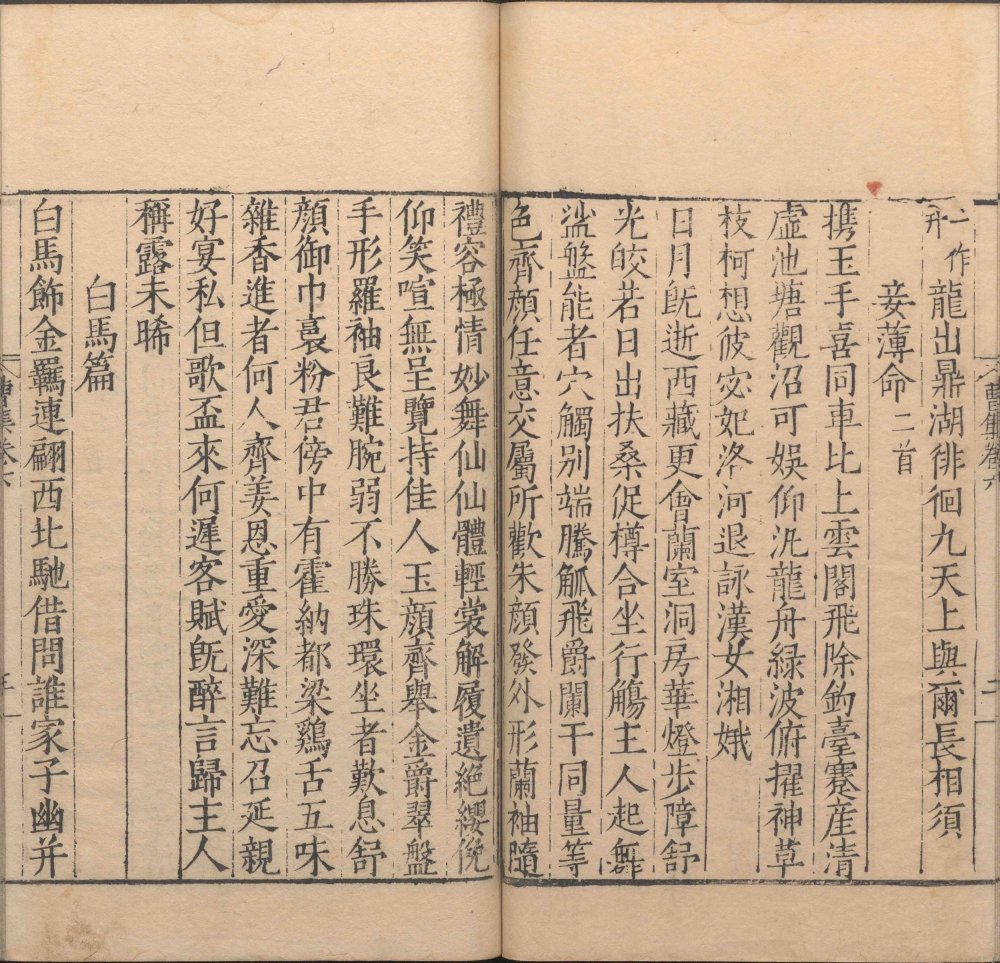 一作
升 龍出鼎湖徘徊九天上與爾長相須
妾薄命二首
携玉手喜同車比上雲閣飛除釣臺蹇産清
虛池塘觀沼可娛仰汎龍舟緑波俯擢神草
枝柯想彼宓妃洛河退詠漢女湘娥
日月旣逝西藏更會蘭室洞房華燈步障舒
光皎若日出扶桑促樽合坐行觴主人起舞
盤能者穴觸别端騰觚飛爵闌干同量等
色齊顔任意交屬所歡朱顔發外形蘭袖隨
禮容極情妙舞仙仙體輕裳解履遺絶纓俛
仰笑喧無呈覽持佳人玉顔齊舉金爵翠盤
手形羅袖良難腕弱不勝珠環坐者歎息舒
顔御巾裛粉君傍中有霍納都梁鷄舌五味
雜香進者何人齊姜恩重愛深難忘召延親
好宴私但歌盃來何遲客賦旣醉言歸主人
稱露未晞
白馬篇
白馬飾金羈連翩西北馳借問誰家子幽并